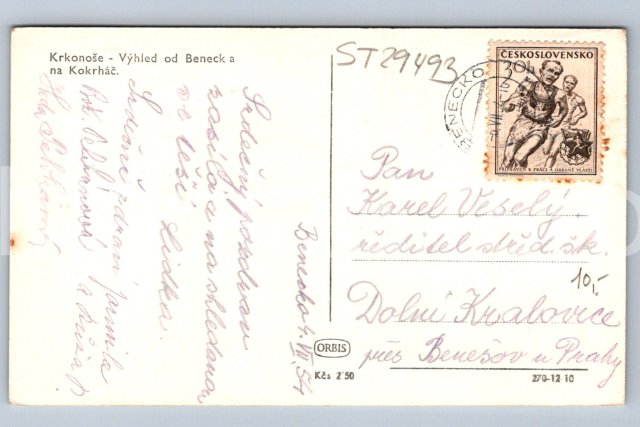 Krkonoše - Výhled od Benecka
na Kokrháč.
ST29493
ČESKOSLOVENSKO
30h
PŘIPRAVEN K PRÁCI A OBRANĚ VLASTI
BENECKO
Benecko 4. VII. 54
Srdečný pozdrav
zasílá a na shledanou
se těší Lidka.
Srdečně zdraví Jarmila
Pan
Karel Veselý,
ředitel střed. šk.
Dolní Kralovice
přes Benešov u Prahy
10,-
ORBIS
Kčs 2'50
270-12 10